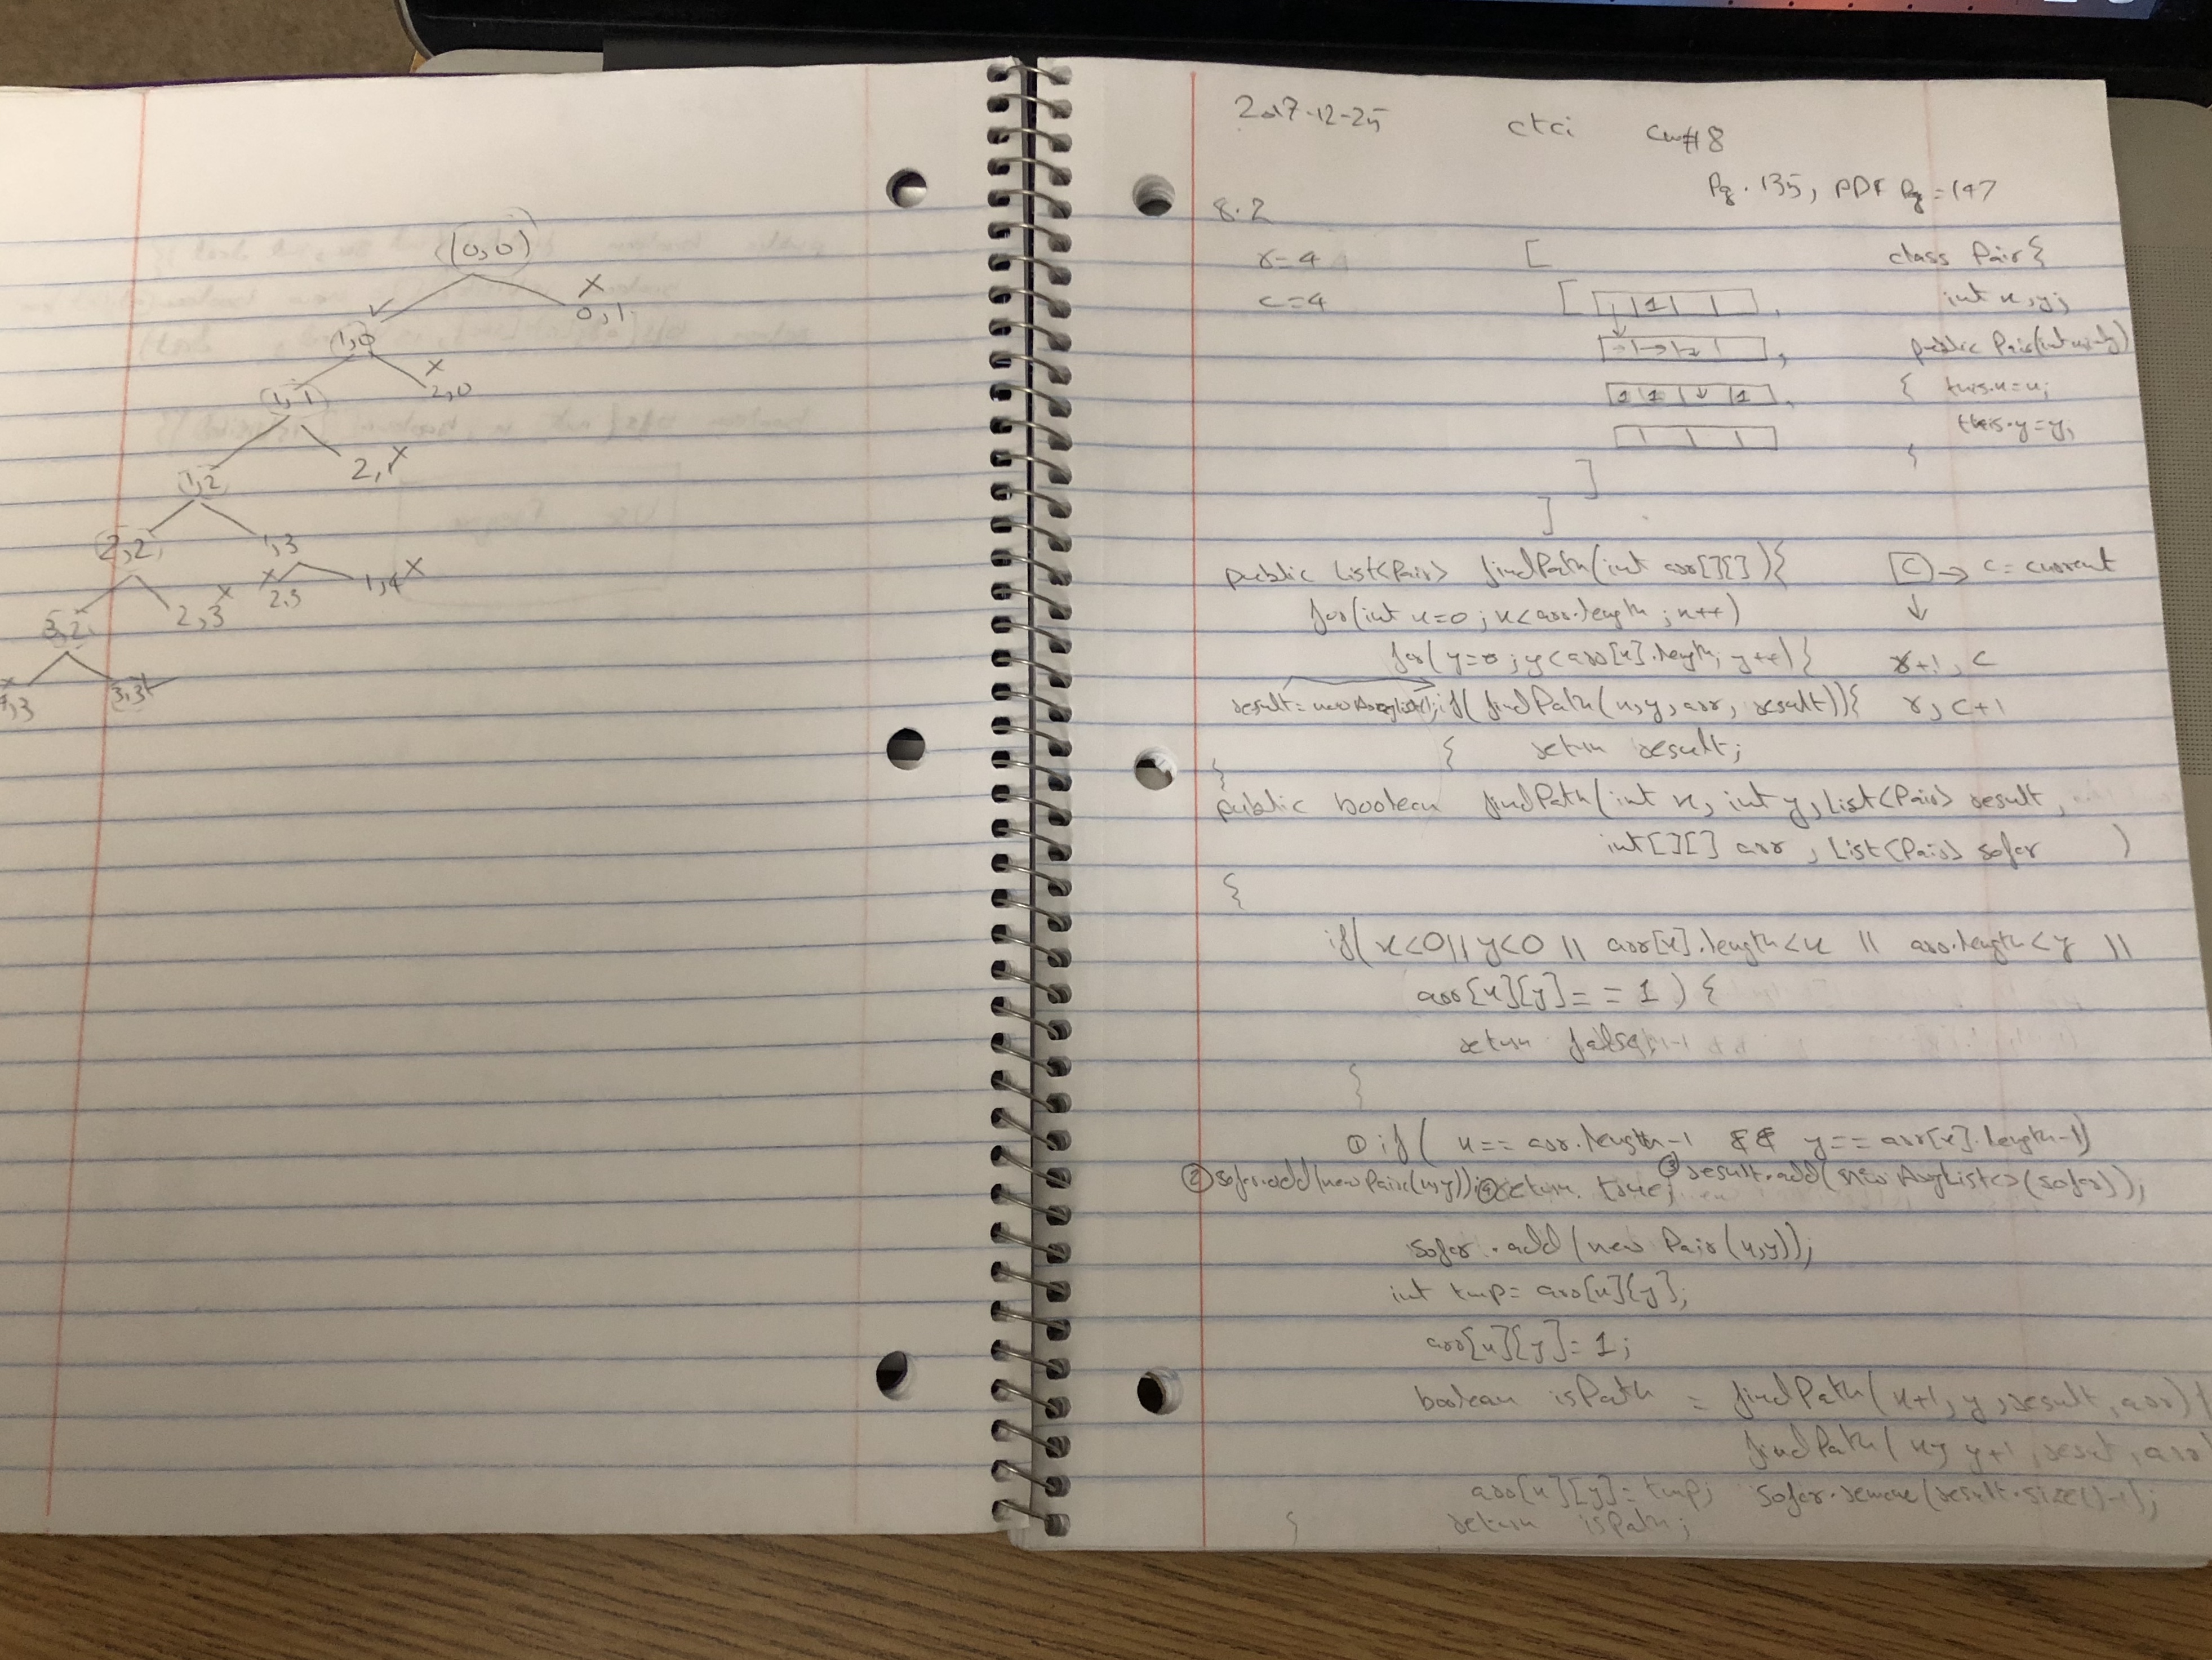 (0,0)
✓ x
1,0 0,1
x
1,1 2,0
1,2 2,1 x
2,2 1,3
x x 1,4 x
3,2 2,3 2,3
x
3,3
2017-12-25 ctci #8
Pg. 135, PDF Pg = 147
8.2
r=4 [ class Pair {
c=4 [ 1 , int x,y;
, public Pair(int x, int y)
1 1 ↓ 1 , { this.x=x;
this.y=y;
] }
]
public List<Pair> findPath(int arr[][]){ [C] → c = current
for(int x=0; x<arr.length; x++) ↓
for( y=0; y<arr[x].length; y++){ r+1, c
result = new ArrayList(); if( findPath(x,y,arr, result)){ r, c+1
{ return result;
}
public boolean findPath(int x, int y, List<Pair> result,
int[][] arr, List<Pair> sofar )
{
if( x<0 || y<0 || arr[x].length<x || arr.length<y ||
arr[x][y]==1) {
return false;
}
① if( x== arr.length-1 && y== arr[x].length-1)
② sofar.add(new Pair(x,y)); ④ return true; ③ result.add(new ArrayList<>(sofar));
sofar.add(new Pair(x,y));
int tmp= arr[x][y];
arr[x][y]=1;
boolean isPath = findPath(x+1, y, result, arr)
findPath(x, y+1, result, arr
arr[x][y]=tmp; sofar.remove(result.size()-1);
} return isPath;